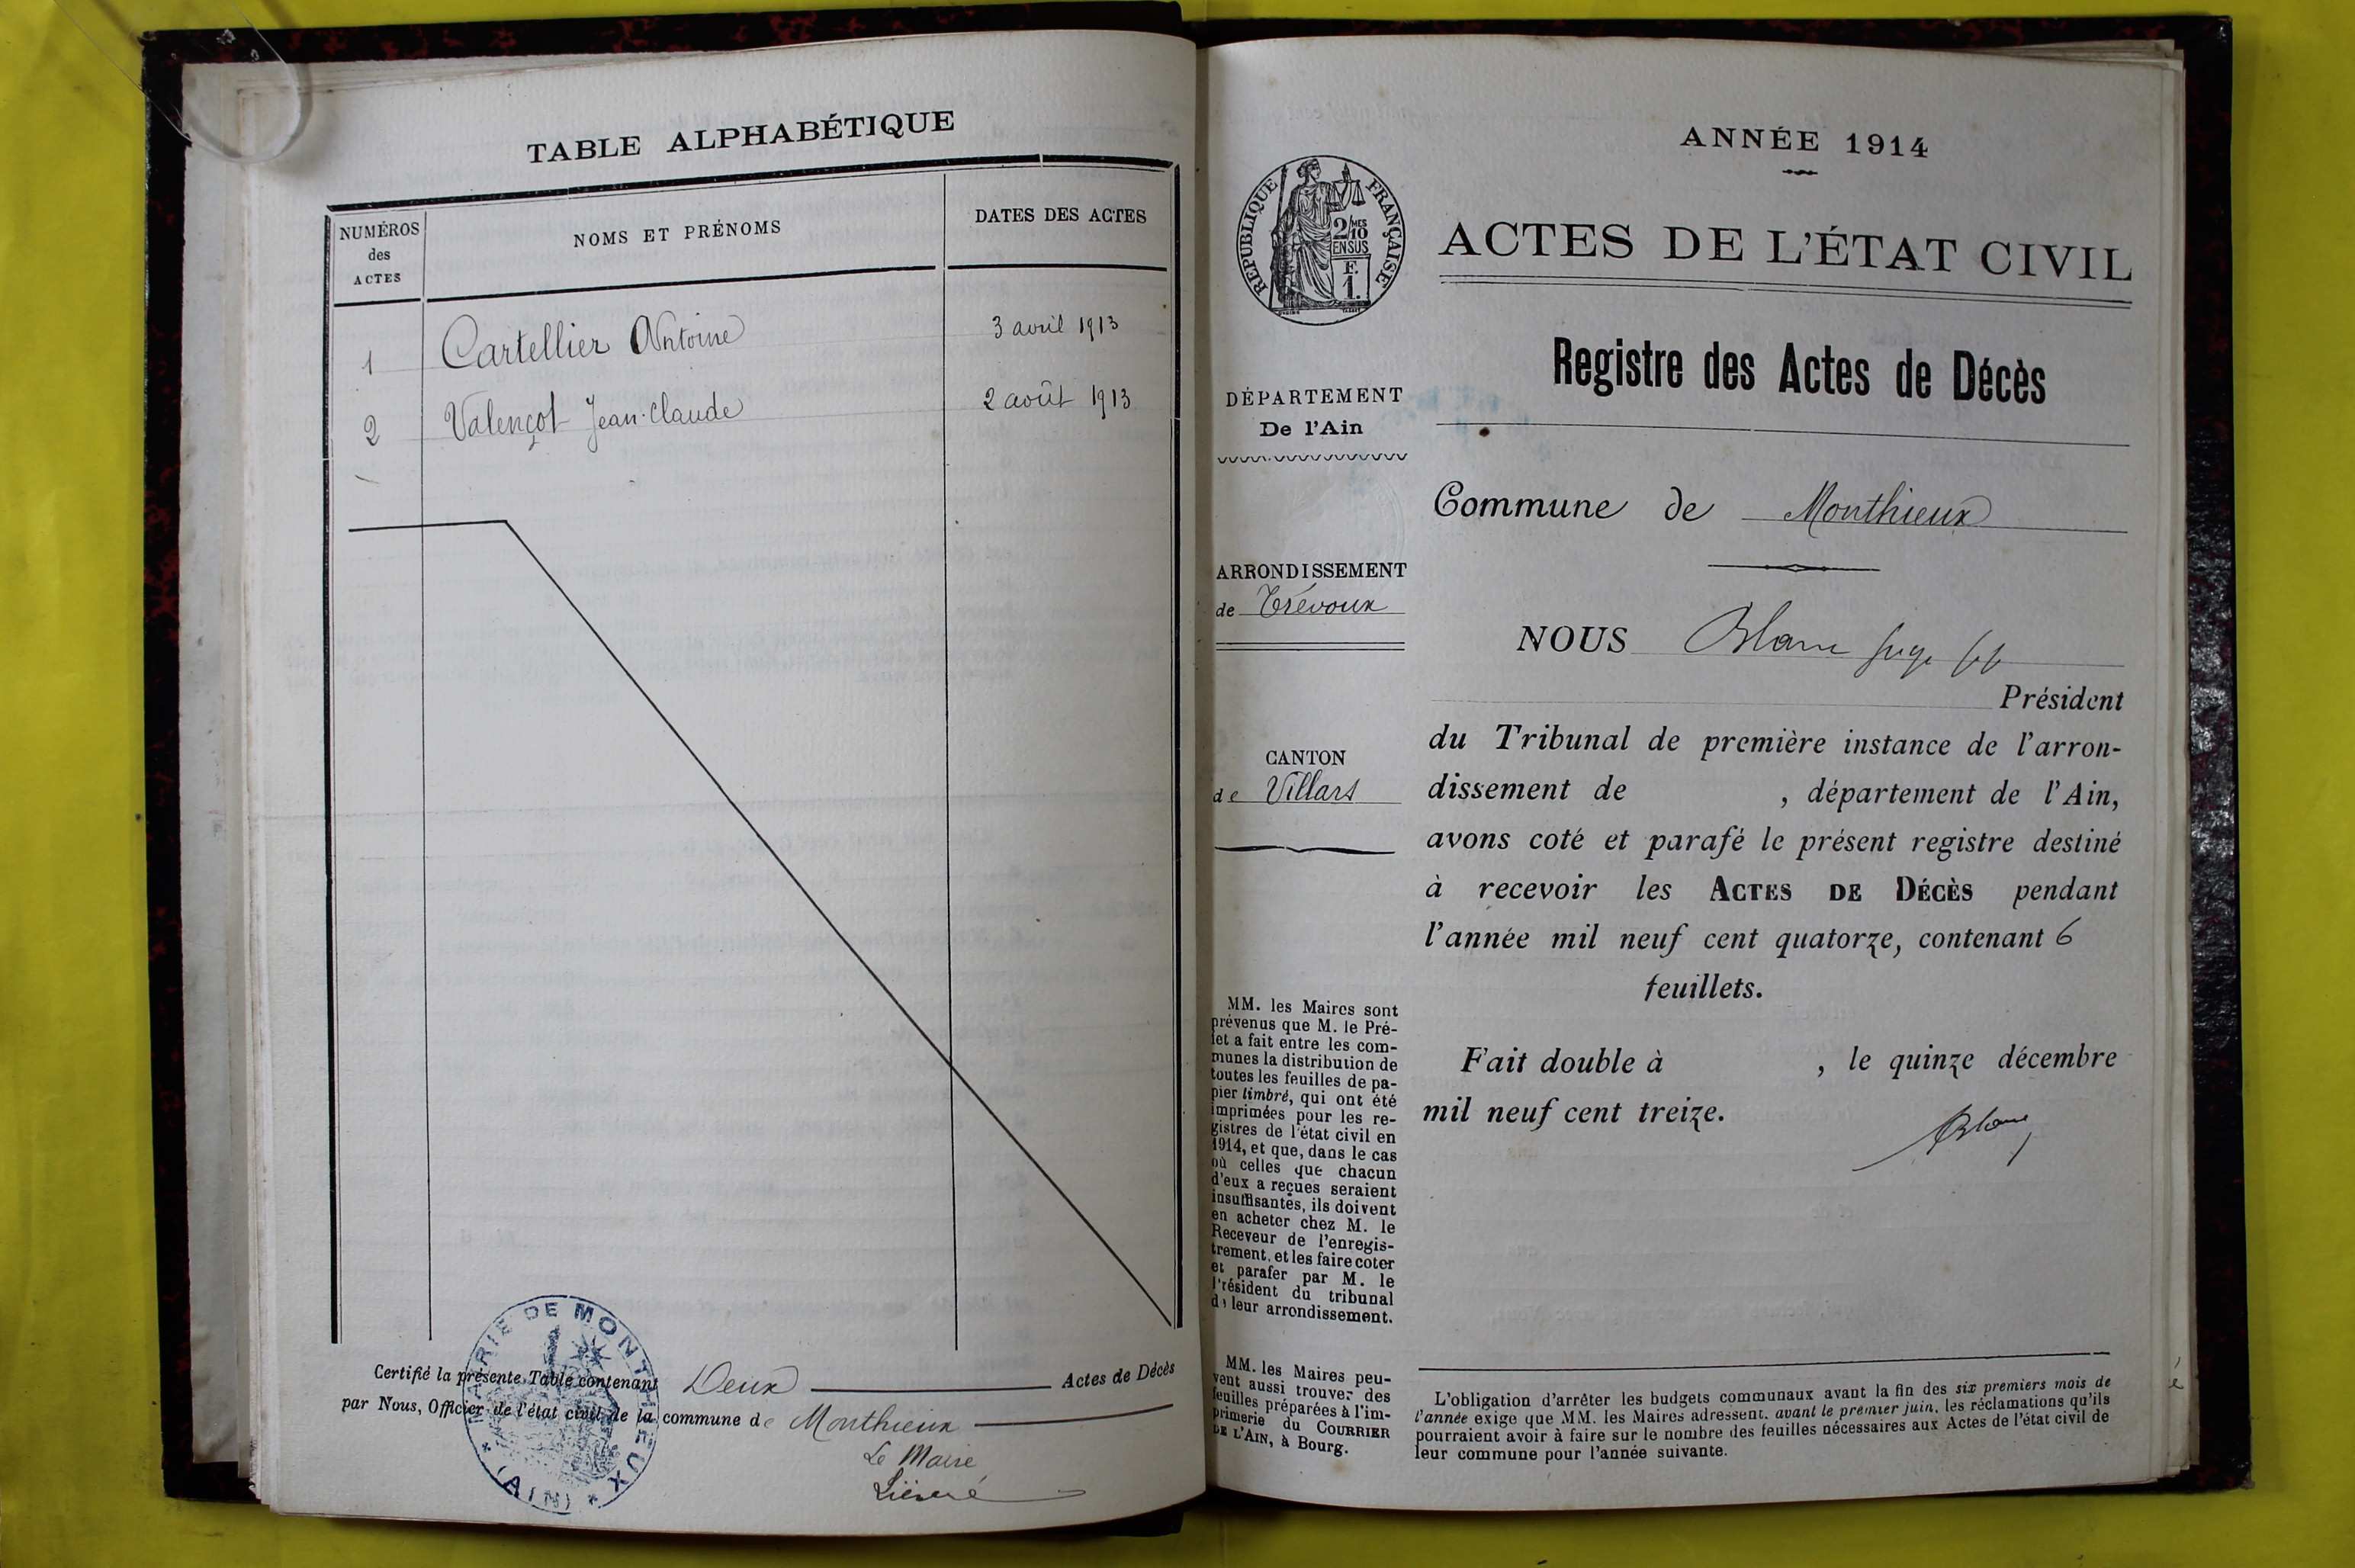 TABLE ALPHABÉTIQUE
NUMÉROS
des
ACTES
NOMS ET PRÉNOMS
DATES DES ACTES
1 Cartellier Antoine 3 avril 1913
2 Valençot Jean-Claude 2 août 1913
MAIRIE DE MONTHIEUX
* (AIN) *
Certifié la présente Table contenant Deux Actes de Décès
par Nous, Officier de l'état civil de la commune de Monthieux
Le Maire
ANNÉE 1914
RÉPUBLIQUE FRANÇAISE
2/MES
10
EN SUS
F.
1.
ACTES DE L'ÉTAT CIVIL
Registre des Actes de Décès
DÉPARTEMENT
De l'Ain
ARRONDISSEMENT
de Trévoux
CANTON
de Villars
MM. les Maires sont
prévenus que M. le Pré-
fet a fait entre les com-
munes la distribution de
toutes les feuilles de pa-
pier timbré, qui ont été
imprimées pour les re-
gistres de l'état civil en
1914, et que, dans le cas
où celles que chacun
d'eux a reçues seraient
insuffisantes, ils doivent
en acheter chez M. le
Receveur de l'enregis-
trement, et les faire coter
et parafer par M. le
Président du tribunal
de leur arrondissement.
MM. les Maires peu-
vent aussi trouver des
feuilles préparées à l'im-
primerie du COURRIER
DE L'AIN, à Bourg.
Commune de Monthieux
NOUS Blanc juge
Président
du Tribunal de première instance de l'arron-
dissement de , département de l'Ain,
avons coté et parafé le présent registre destiné
à recevoir les ACTES DE DÉCÈS pendant
l'année mil neuf cent quatorze, contenant 6
feuillets.
Fait double à , le quinze décembre
mil neuf cent treize.
Blanc
L'obligation d'arrêter les budgets communaux avant la fin des six premiers mois de
l'année exige que MM. les Maires adressent, avant le premier juin, les réclamations qu'ils
pourraient avoir à faire sur le nombre des feuilles nécessaires aux Actes de l'état civil de
leur commune pour l'année suivante.